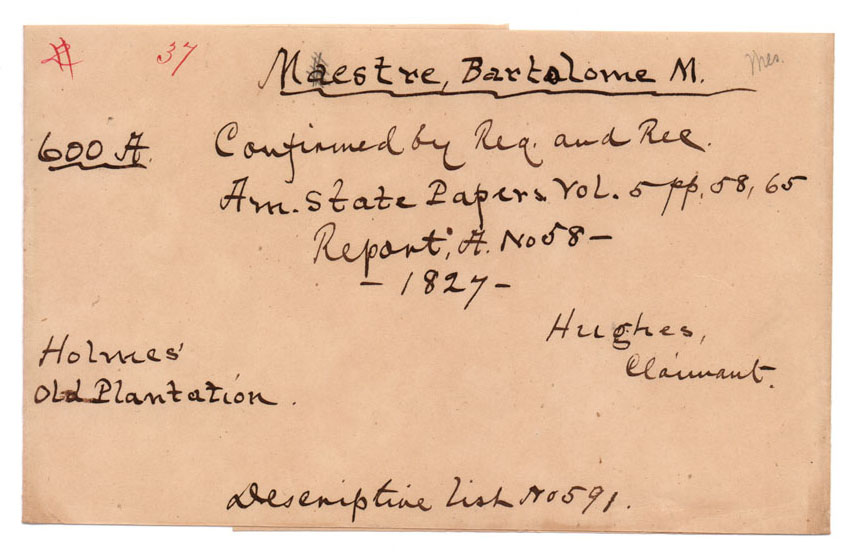 37
Maestre, Bartolome M.
Mes.
600 A. Confirmed by Reg. and Rec.
Am. State Papers Vol. 5 pp. 58, 65
Report, A. No 58 -
- 1827 -
Hughes,
Claimant.
Holmes'
Old Plantation.
Descriptive list No 591.